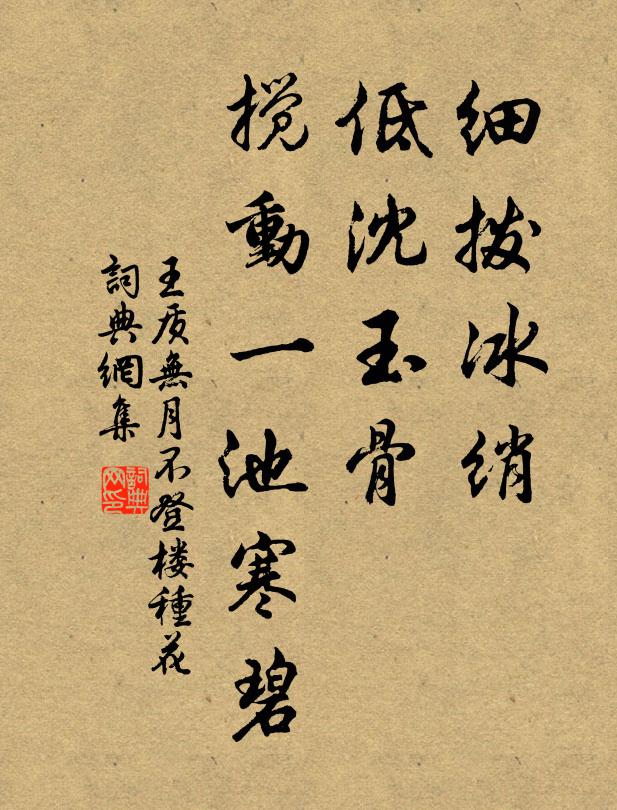 细拨冰绡
低沈玉骨
搅動一池寒碧
王质無月不登楼種花
詞典網集
詞典网印